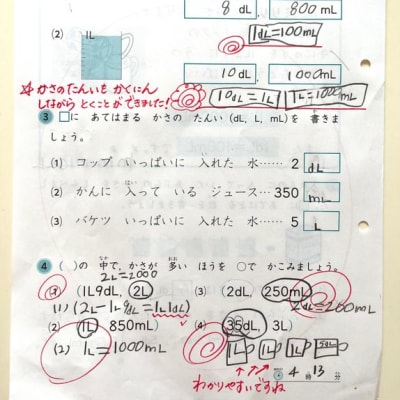 8 dL 800 mL
(2) 1L 1dL=100mL
10 dL, 1000mL
☆かさのたんいも かくにん
しながら とくことが できました! 10dL=1L 1L=1000mL
3 □に あてはまる かさの たんい (dL, L, mL)を 書きま
しょう。
(1) コップ いっぱいに 入れた 水…… 2 dL
(2) かんに 入って いる ジュース…350 mL
(3) バケツ いっぱいに 入れた 水…… 5 L
4 ( )の 中で、かさが 多い ほうを ○で かこみましょう。
2L=2000
(1) (1L9dL, 2L) (3) (2dL, 250mL)
(2) (1L, 850mL) (4) (35dL, 3L)
(2) 1L=1000mL 1L 1L 1L
4 時 13 分
わかりやすいですね